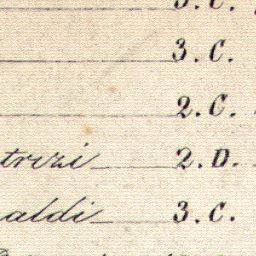 3. C.
3. C.
2. C.
trizi 2. D.
aldi 3. C.